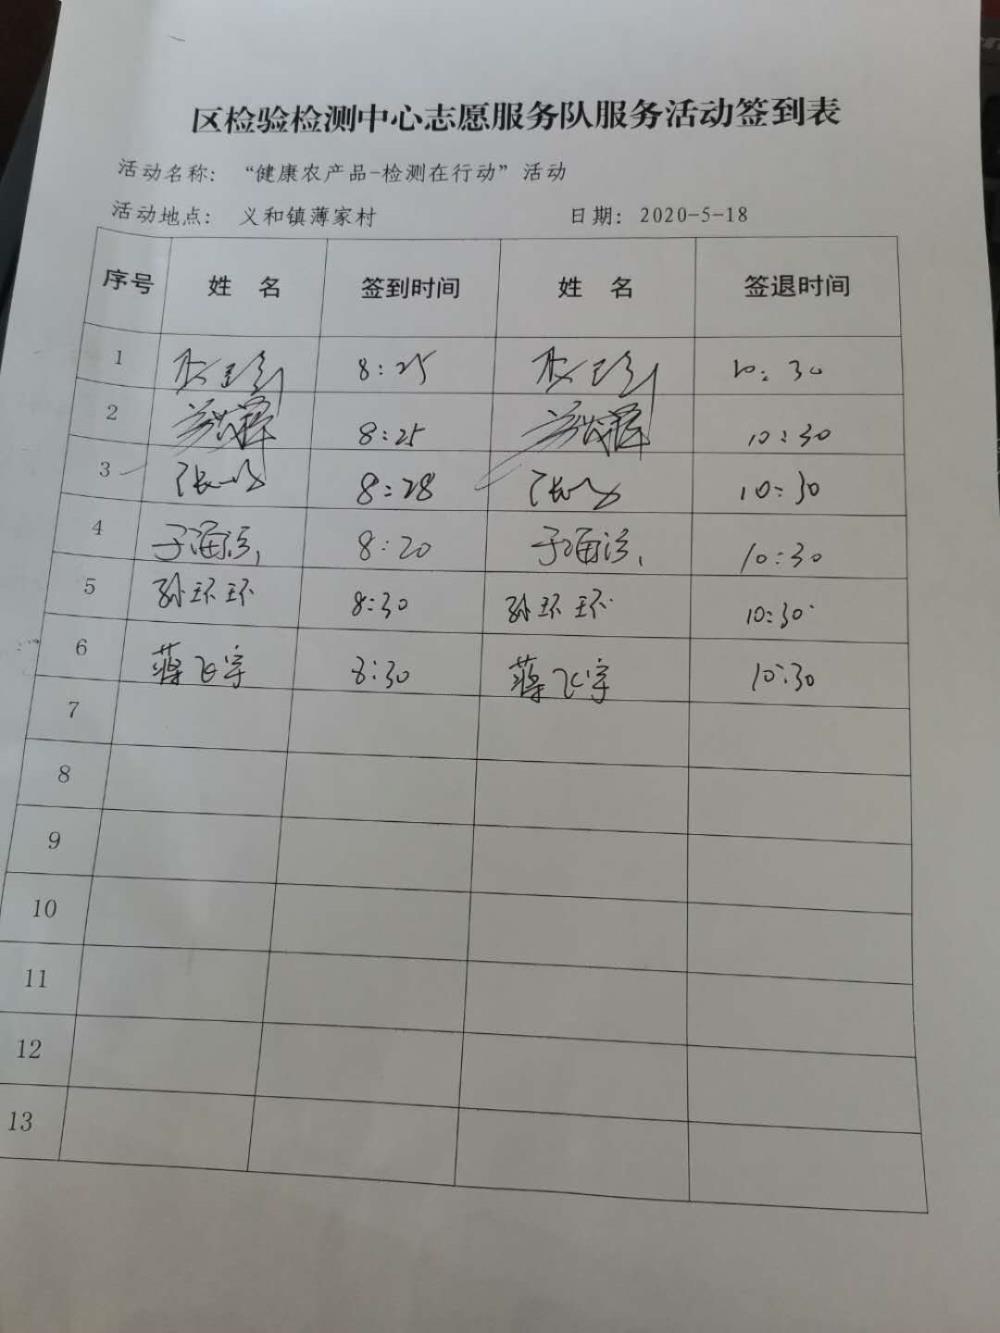 区检验检测中心志愿服务队服务活动签到表
活动名称：“健康农产品-检测在行动”活动
活动地点： 义和镇薄家村 日期：2020-5-18
序号 姓 名 签到时间 姓 名 签退时间
1 8:25 10:30
2 8:25 10:30
3 8:28 10:30
4 8:20 10:30
5 孙环环 8:30 孙环环 10:30
6 蒋飞宇 8:30 蒋飞宇 10:30
7
8
9
10
11
12
13